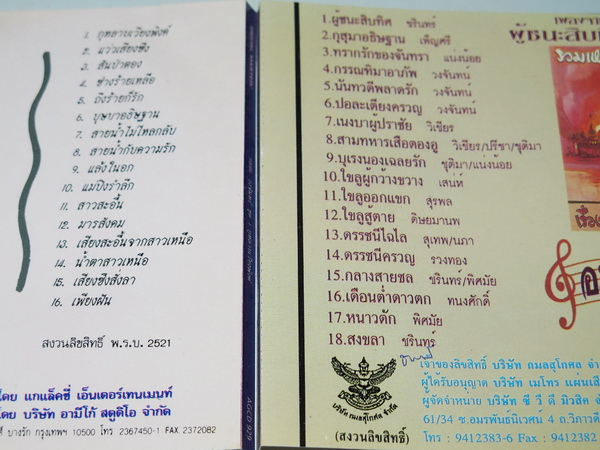 1. กุหลาบเวียงพิงค์
2. แว่วเสียงซึง
3. ส้มป่าตอง
4. ช่างร้ายเหลือ
5. ถึงร้ายก็รัก
6. บุษบาอธิษฐาน
7. สายน้ำไม่ไหลกลับ
8. สายน้ำกับความรัก
9. แล้งในอก
10. แม่ปิงรำลึก
11. สาวสะอื้น
12. มารสังคม
13. เสียงสะอื้นจากสาวเหนือ
14. น้ำตาสาวเหนือ
15. เสียงซึงสั่งลา
16. เพียงฝัน
สงวนลิขสิทธิ์ พ.ร.บ. 2521
โดย แกแล็คซี่ เอ็นเตอร์เทนเมนท์
โดย บริษัท อามีโก้ สตูดิโอ จำกัด
บางรัก กรุงเทพฯ 10500 โทร 2367450-1 FAX. 2372082
AGCD 929
เพลงจาก
ผู้ชนะสิบ
รวม
1.ผู้ชนะสิบทิศ ชรินทร์
2.กุสุมาอธิษฐาน เพ็ญศรี
3.ทรากรักของจันทรา แน่งน้อย
4.กรรณทิมาอาภัพ วงจันทน์
5.นันทวดีพลาดรัก วงจันทน์
6.ปอละเตียงครวญ วงจันทน์
7.เนงบาผู้ปราชัย วิเชียร
8.สามทหารเสือตองอู วิเชียร/ปรีชา/ชุติมา
9.บุเรงนองเฉลยรัก ชุติมา/แน่งน้อย
10.ไขลูผู้กว้างขวาง เสน่ห์
11.ไขลูออกแขก สุรพล
12.ไขลูสู้ตาย ดิษยมานพ
13.ดรรชนีไฉไล สุเทพ/นภา
14.ดรรชนีครวญ รวงทอง
15.กลางสายชล ชรินทร์/พิศมัย
16.เดือนต่ำดาวตก ทนงศักดิ์
17.หนาวตัก พิศมัย
18.สงขลา ชรินทร์
เจ้าของลิขสิทธิ์ บริษัท กมลสุโกศล จำ
ผู้ได้รับอนุญาต บริษัท เมโทร แผ่นเสีย
ผู้จัดจำหน่าย บริษัท ซี วี ดี มิวสิค จำ
61/34 ซ.อมรพันธ์นิเวศน์ 4 ถ.วิภาวดี
โทร : 9412383-6 Fax : 9412382
บริษัท กมลสุโกศล จำกัด
(สงวนลิขสิทธิ์)